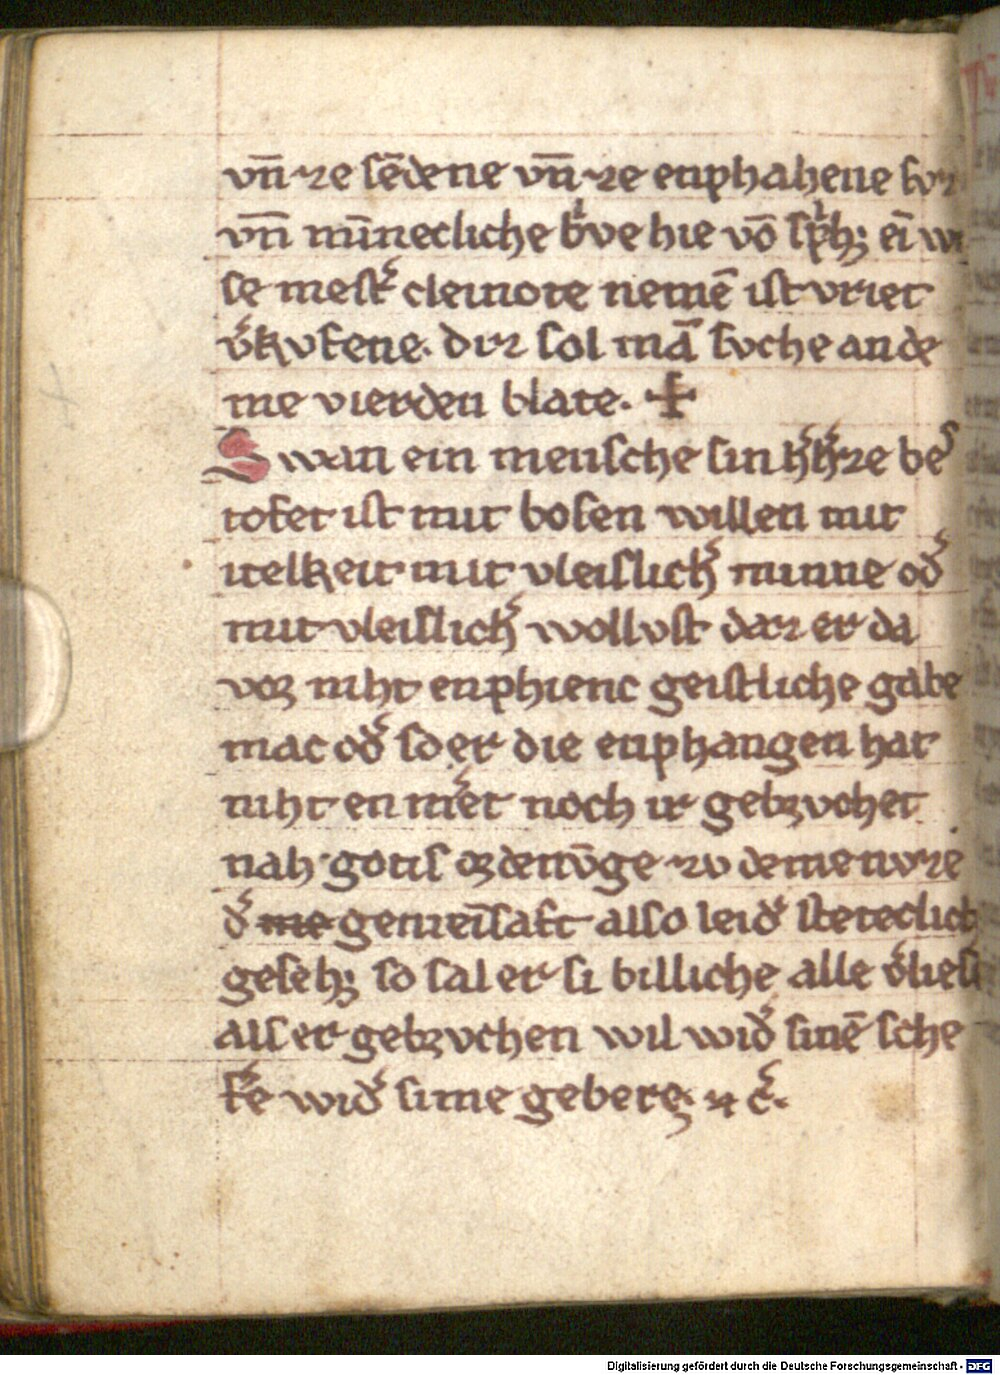 vn̄ ze sēdene vn̄ ze enphahene
vn̄ minnecliche hie vō sp̾chꝫ ein
se mest̾ cleinote nemē ist vriet
v̾kvfene. diz sol mā svche an de
me vierden blate. ✝
Swan ein mensche sin h̾ze be
tofet ist mit bosen willen mit
itelkeit mit vleislich̾ minne od̾
mit vleislich̾ wollvst daz er da
voꝛ niht enphienc geistliche gabe
mac od̾ so er die enphangen hat
niht en mēret noch ir gebꝛvchet
nah gotis oꝛdenūge zv deme nvze
d̾ me gemeīsaft also leid̾ steteclich
gesehꝫ so sal er si billiche alle v̾liesē
als er gebꝛvchen wil wid̾ sinē sche
fe wid̾ sime gebeteꝫ. ⁊ c̾.
Digitalisierung gefördert durch die Deutsche Forschungsgemeinschaft - DFG